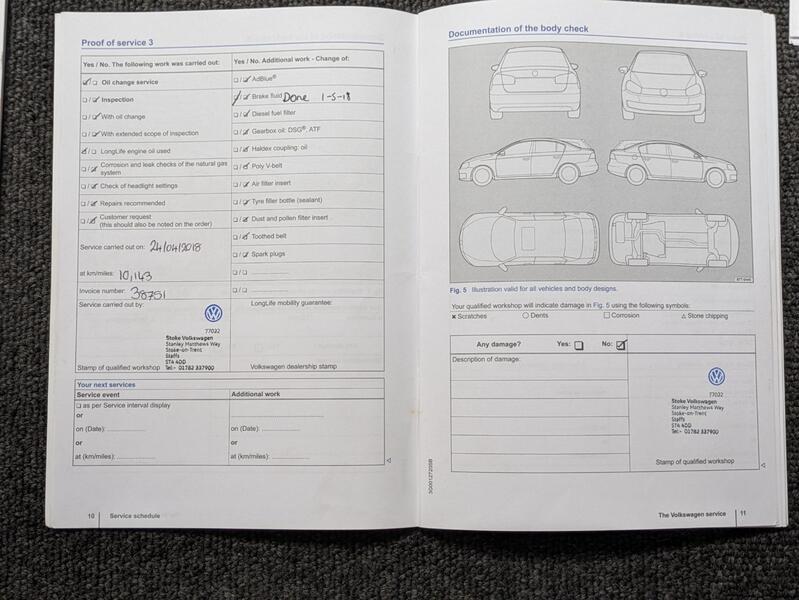 Proof of service 3
Yes / No. The following work was carried out:
☑ / ☐ Oil change service
☐ / ☑ Inspection
☐ / ☑ With oil change
☐ / ☑ With extended scope of inspection
☑ / ☐ LongLife engine oil used
☐ / ☑ Corrosion and leak checks of the natural gas
system
☐ / ☑ Check of headlight settings
☐ / ☑ Repairs recommended
☐ / ☑ Customer request
(this should also be noted on the order)
Service carried out on: 24/04/2018
at km/miles: 10,143
Invoice number: 38751
Service carried out by:
77032
Stoke Volkswagen
Stanley Matthews Way
Stoke-on-Trent
Staffs
ST4 4DD
Tel:- 01782 337900
Stamp of qualified workshop
Yes / No. Additional work - Change of:
☐ / ☑ AdBlue®
☑ / ☑ Brake fluid Done 1-5-18
☐ / ☑ Diesel fuel filter
☐ / ☑ Gearbox oil: DSG®, ATF
☐ / ☑ Haldex coupling: oil
☐ / ☑ Poly V-belt
☐ / ☑ Air filter insert
☐ / ☑ Tyre filler bottle (sealant)
☐ / ☑ Dust and pollen filter insert
☐ / ☑ Toothed belt
☐ / ☑ Spark plugs
☐ / ☐
☐ / ☐
LongLife mobility guarantee:
Volkswagen dealership stamp
Your next services
Service event Additional work
☐ as per Service interval display
or
on (Date): on (Date):
or or
at (km/miles): at (km/miles):
10 Service schedule
Documentation of the body check
Fig. 5 Illustration valid for all vehicles and body designs.
Your qualified workshop will indicate damage in Fig. 5 using the following symbols:
✖ Scratches ○ Dents □ Corrosion △ Stone chipping
Any damage? Yes: ☐ No: ☑
Description of damage:
77032
Stoke Volkswagen
Stanley Matthews Way
Stoke-on-Trent
Staffs
ST4 4DD
Tel:- 01782 337900
Stamp of qualified workshop
3G0012720SB
The Volkswagen service 11